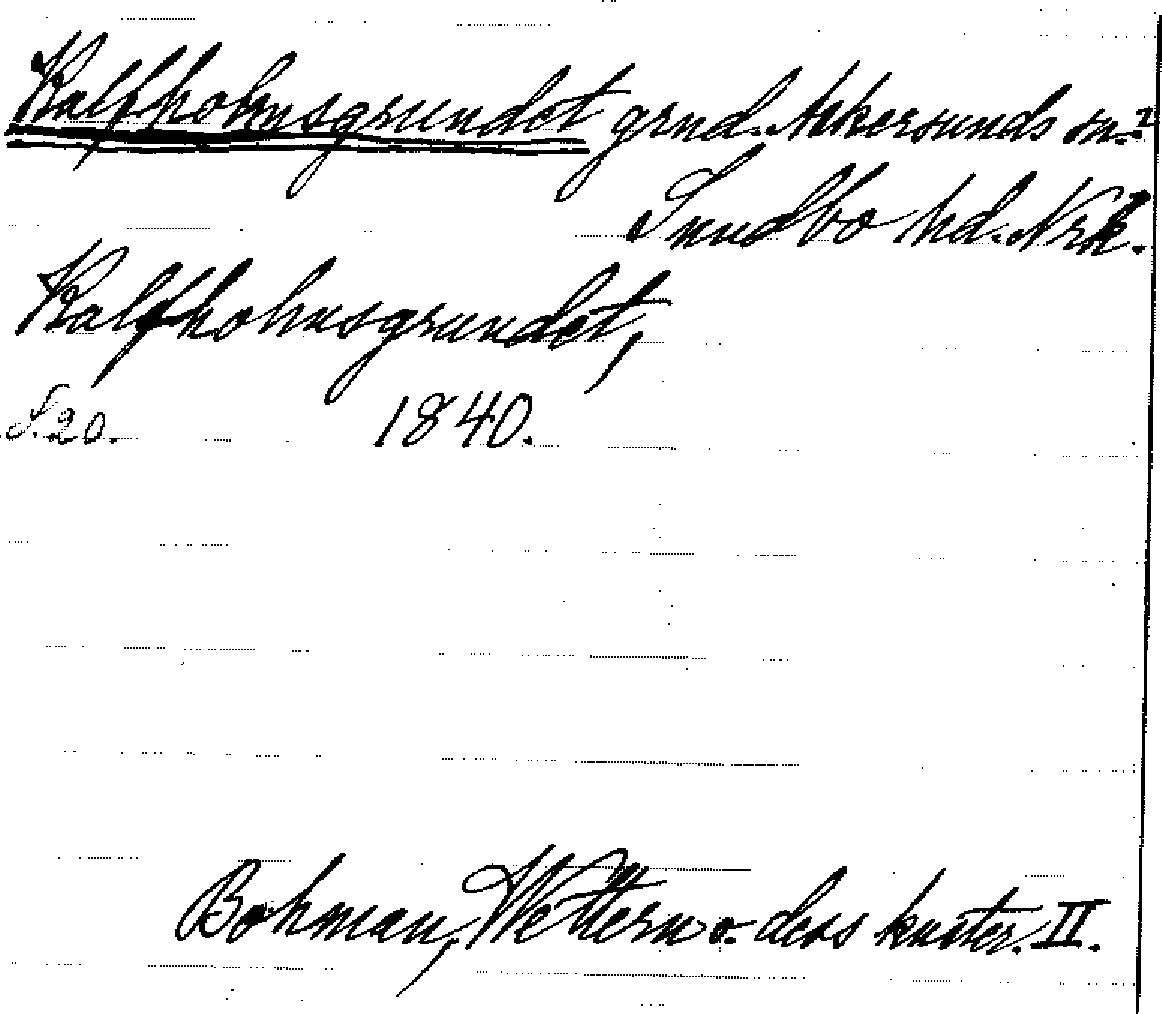 Kalfholmsgrundet grnd. Askersunds sn.?
Sundbo hd. Nrk.?
Kalfholmsgrundet,
S. 20. 1840.
Bohman, Wettern o. dess kuster. II.